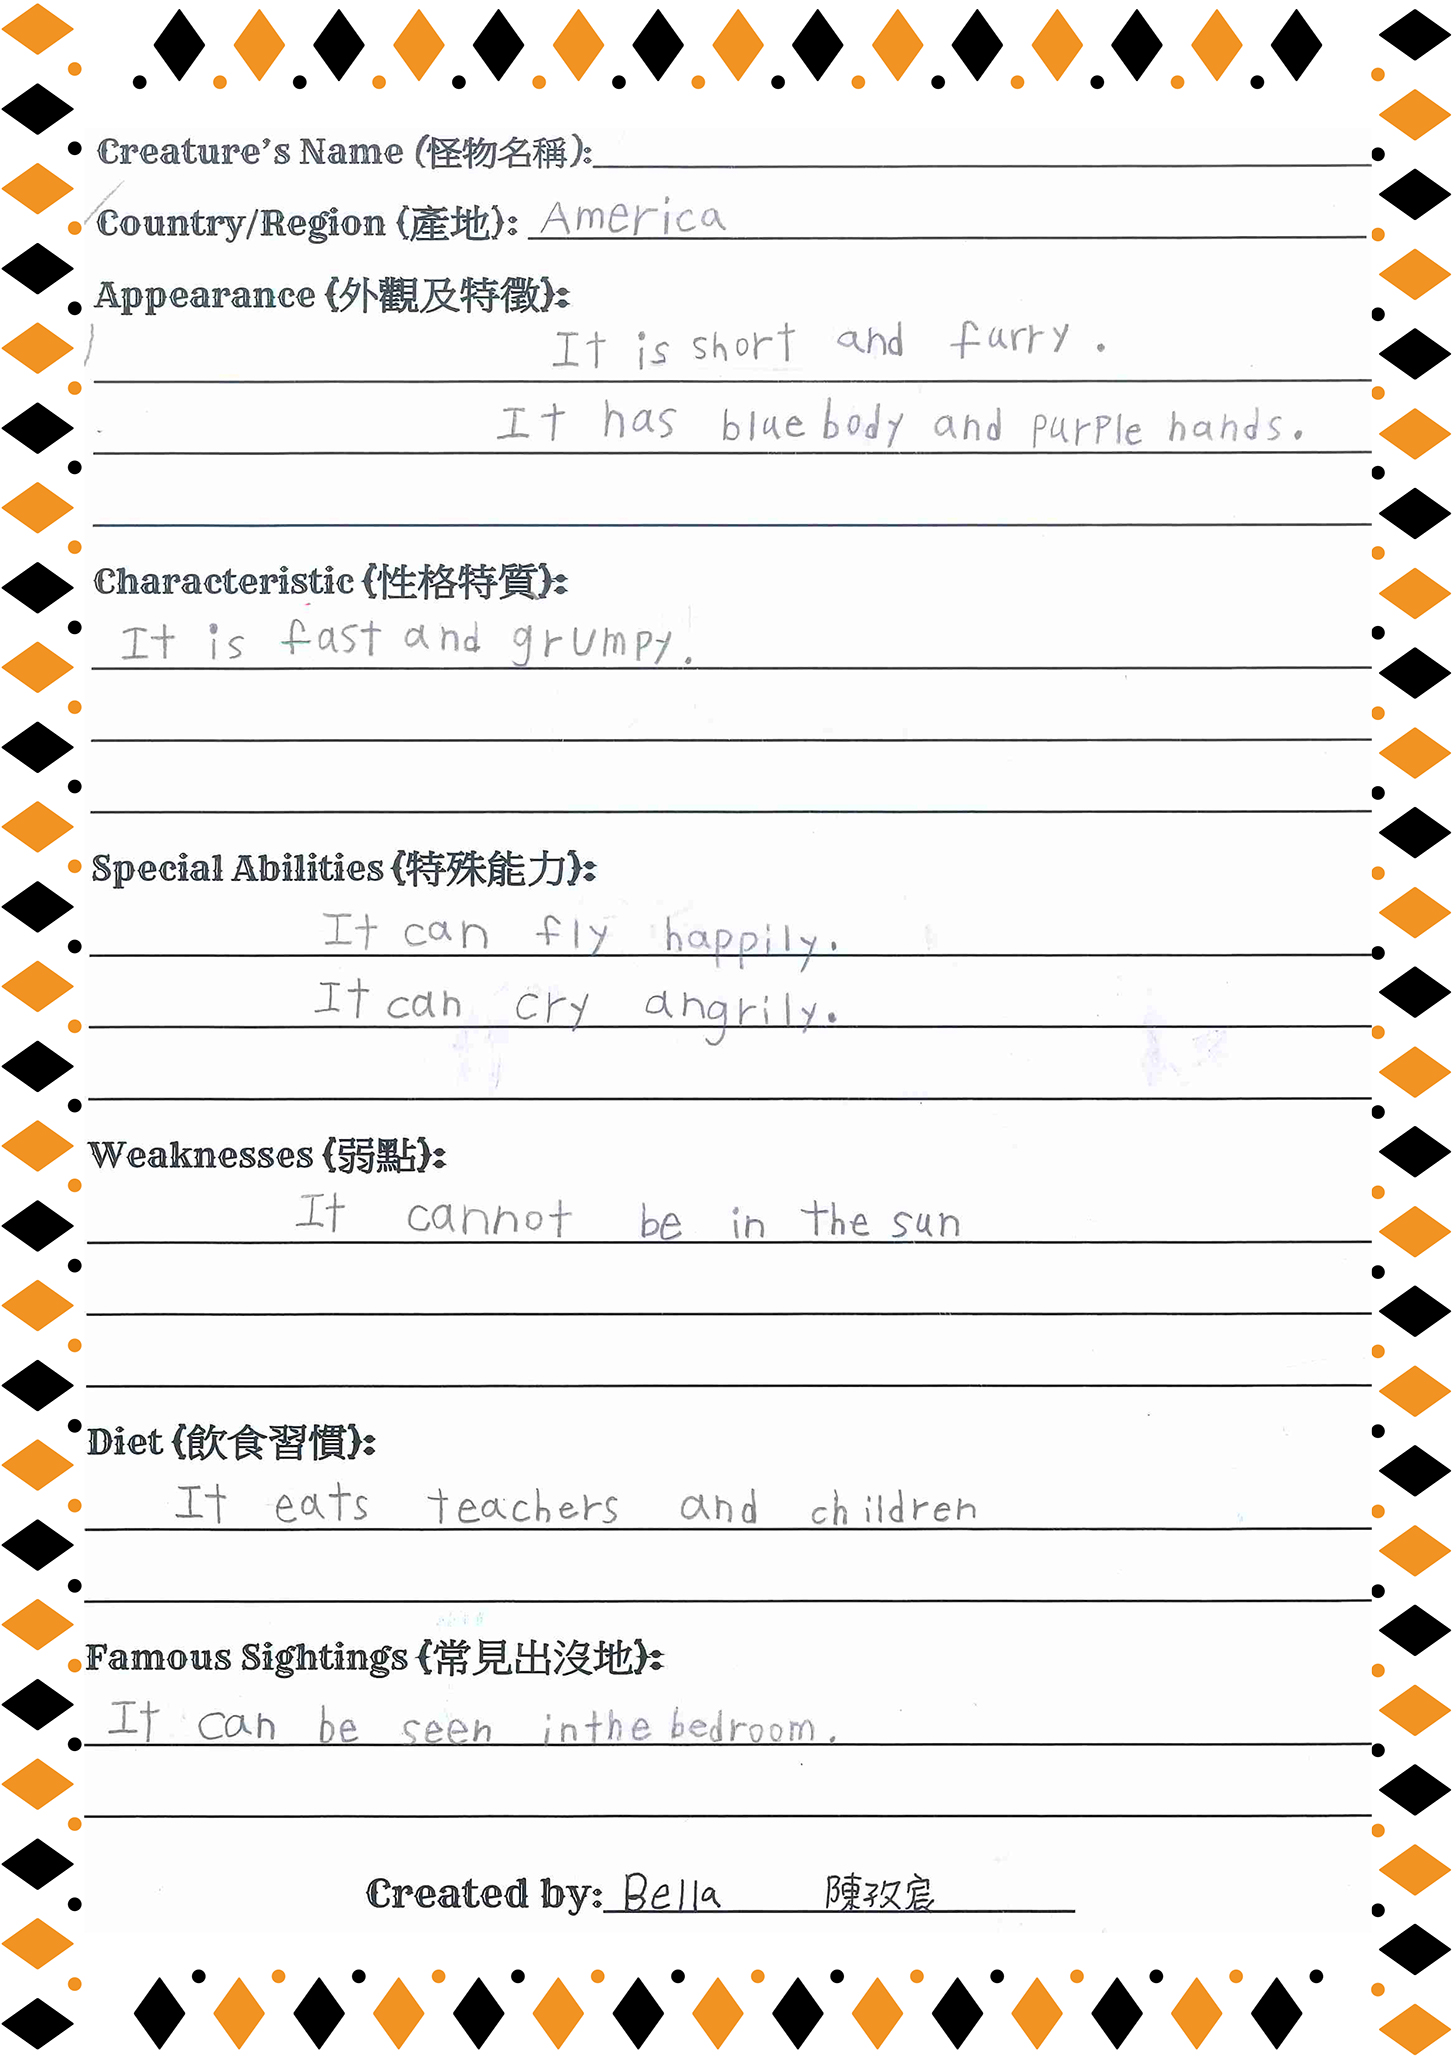 Creature's Name (怪物名稱):
Country/Region (產地): America
Appearance (外觀及特徵):
It is short and furry.
It has blue body and purple hands.
Characteristic (性格特質):
It is fast and grumpy.
Special Abilities (特殊能力):
It can fly happily.
It can cry angrily.
Weaknesses (弱點):
It cannot be in the sun
Diet (飲食習慣):
It eats teachers and children
Famous Sightings (常見出沒地):
It can be seen inthe bedroom.
Created by: Bella 陳孜宸